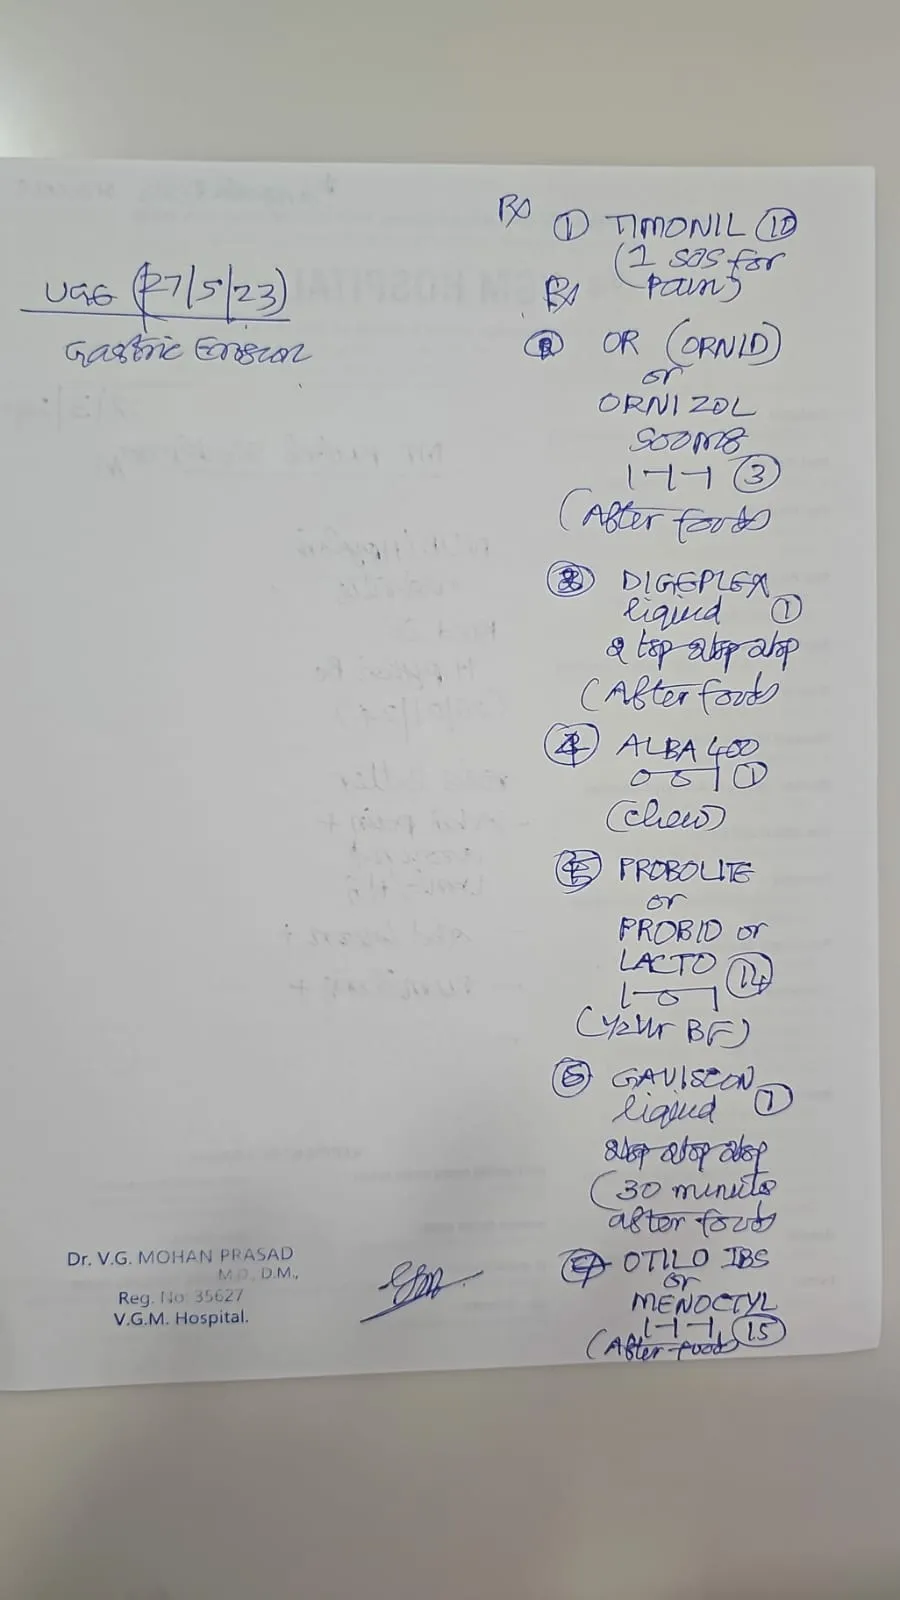 UGG (27/5/23)
Gastric Erosion
Rx ① TIMONIL ⑩
(1 SOS for
pain)
Rx
② OR (ORNID)
or
ORNIZOL
500MG
1-1-1 ③
(After food)
③ DIGEPLEX
liquid ①
2 tsp-2tsp-2tsp
(After food)
④ ALBA 400
0-0-1 ①
(chew)
PROBOLITE
or
PROBID or
LACTO ⑭
1-0-1
(1/2 Hr BF)
⑥ GAVISCON
liquid ①
2tsp-2tsp-2tsp
(30 minute
after food)
OTILO IBS
or
MENOCTYL
1-1-1 ⑮
(After food)
Dr. V.G. MOHAN PRASAD
M.D., D.M.,
Reg. No: 35627
V.G.M. Hospital.